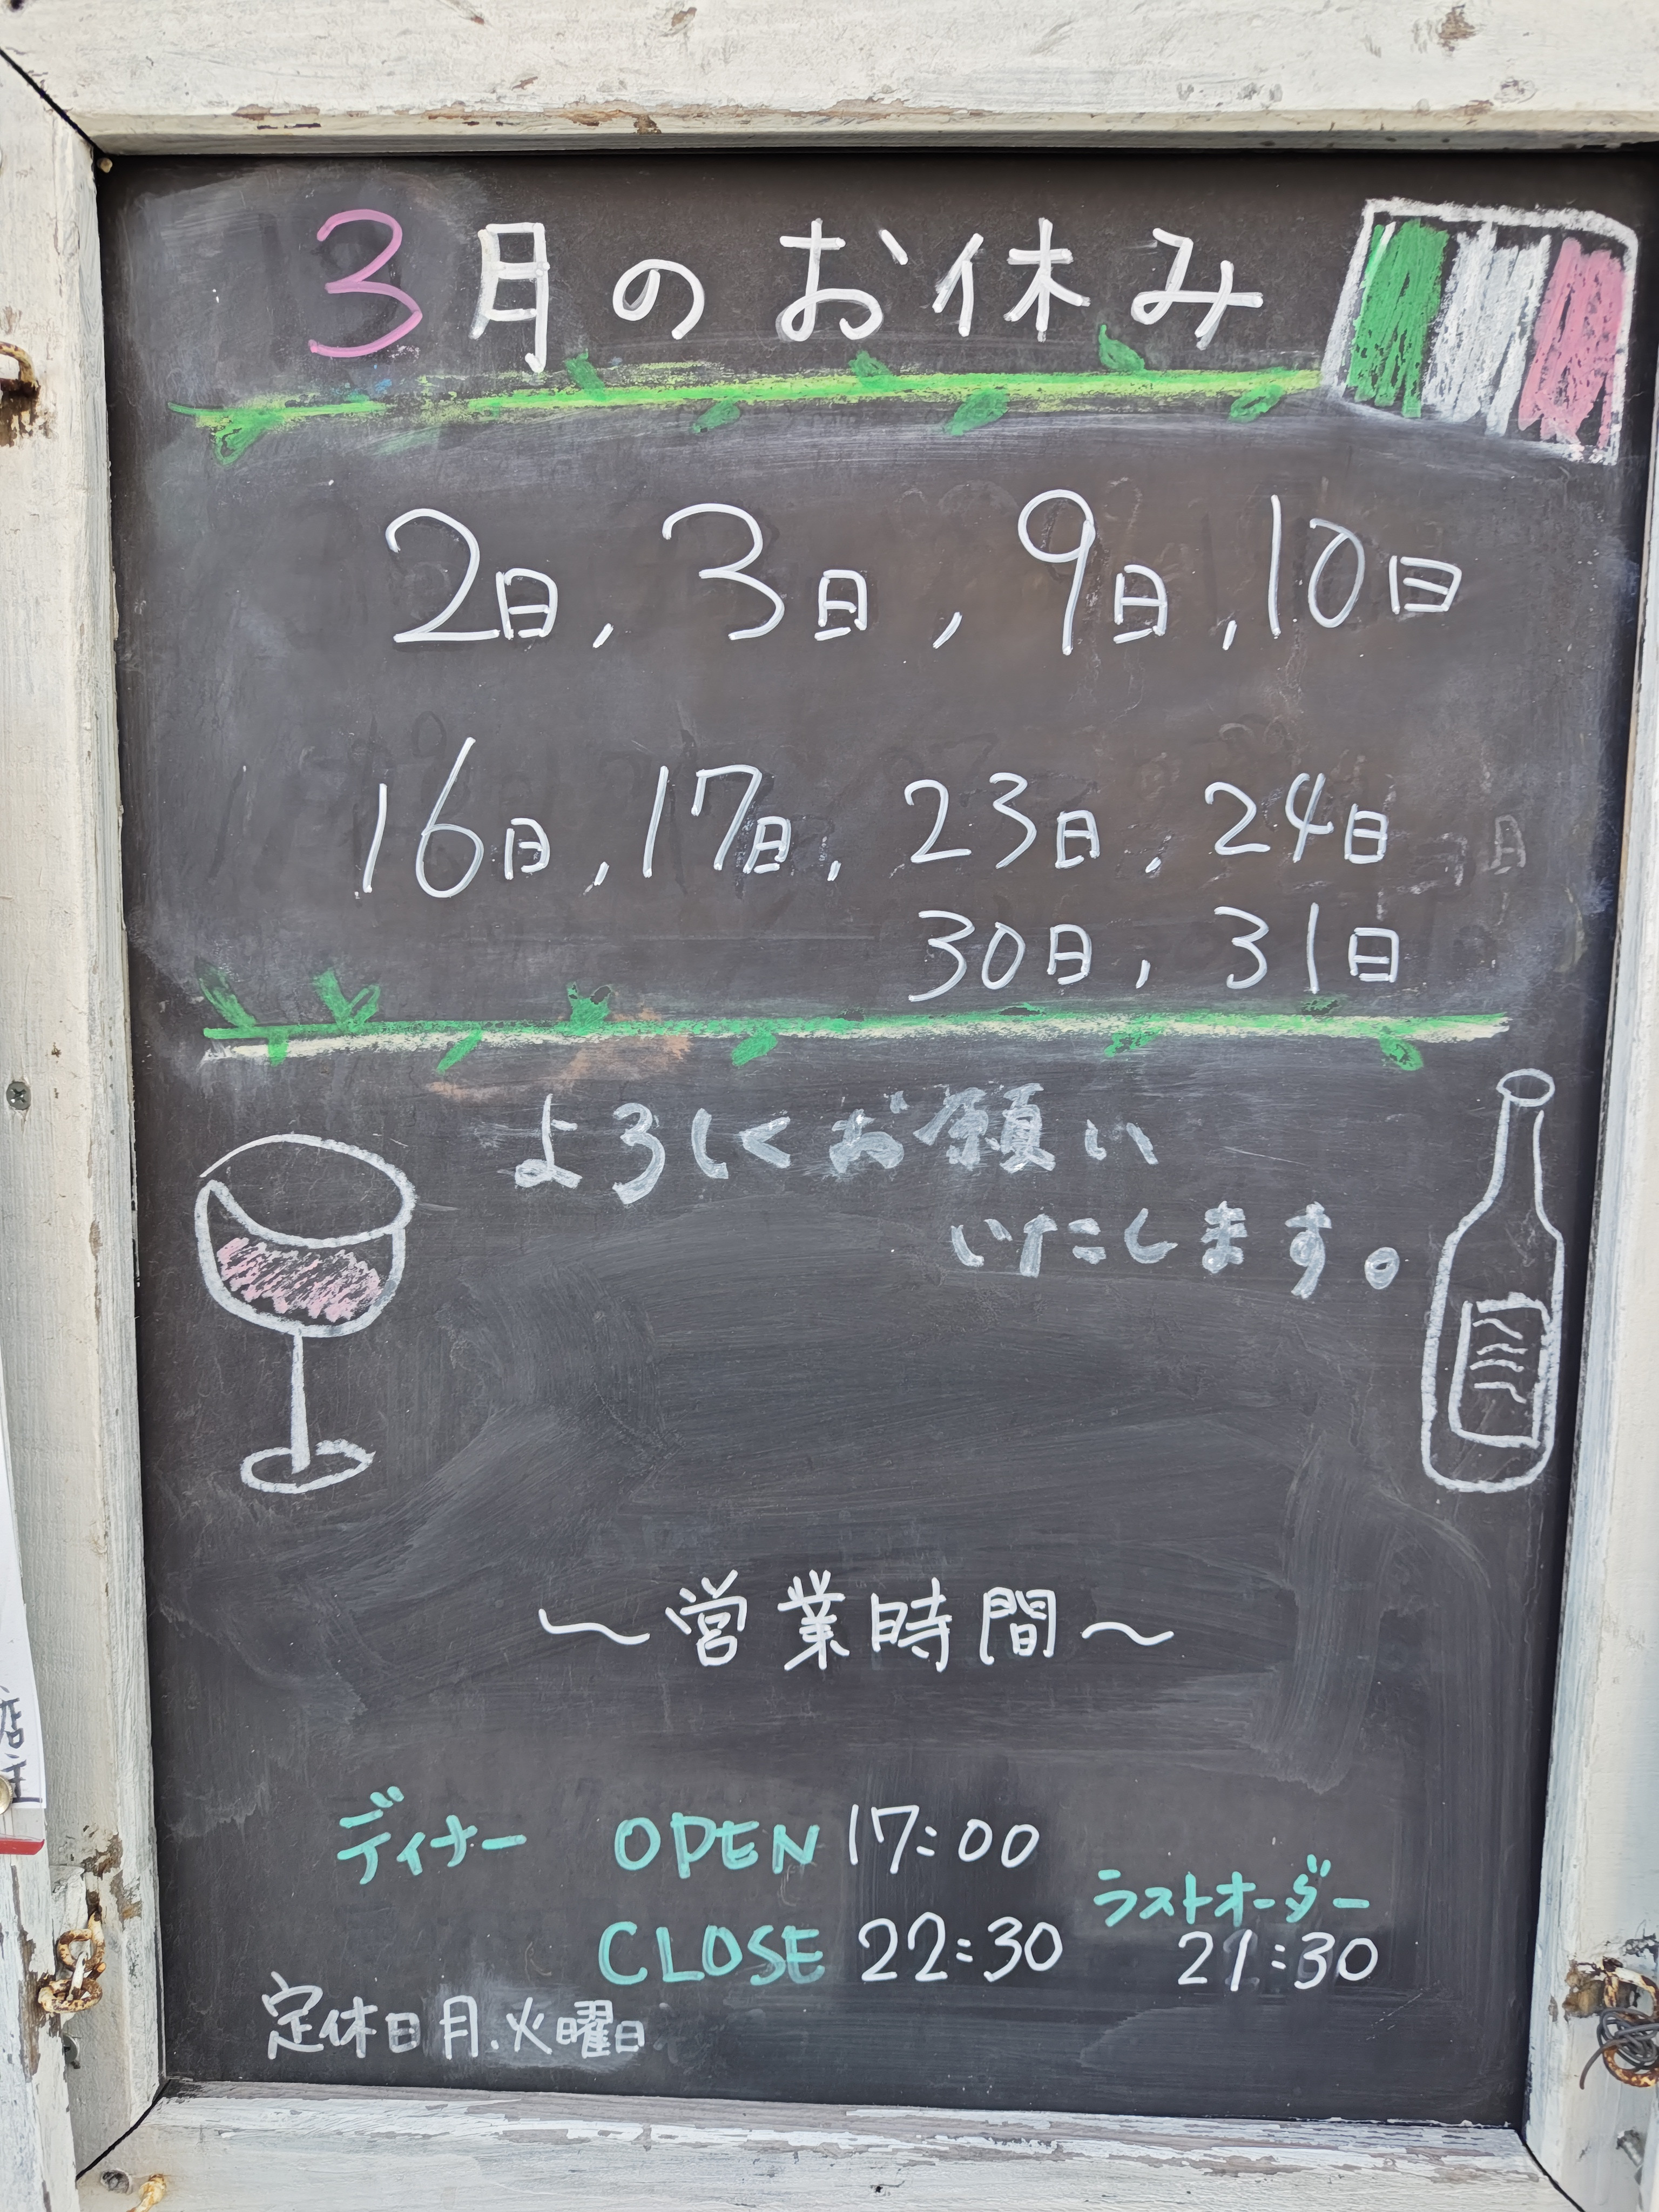 3月のお休み
2日, 3日, 9日, 10日
16日, 17日, 23日, 24日
30日, 31日
よろしくお願い
いたします。
～営業時間～
ディナー OPEN 17:00
ラストオーダー
CLOSE 22:30 21:30
定休日 月.火曜日
店主